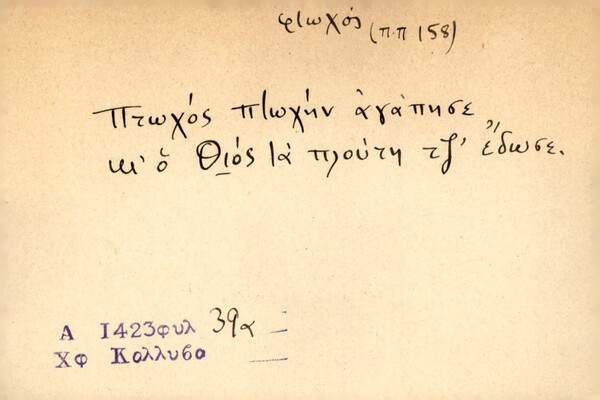 φτωχός (π.π 158)
Πτωχός πτωχήν ἀγάπησε
κι' ὁ Θιός τὰ πλούτη τζ' ἔδωσε.
Α 1423φυλ 39α
Χφ Κολλυβα